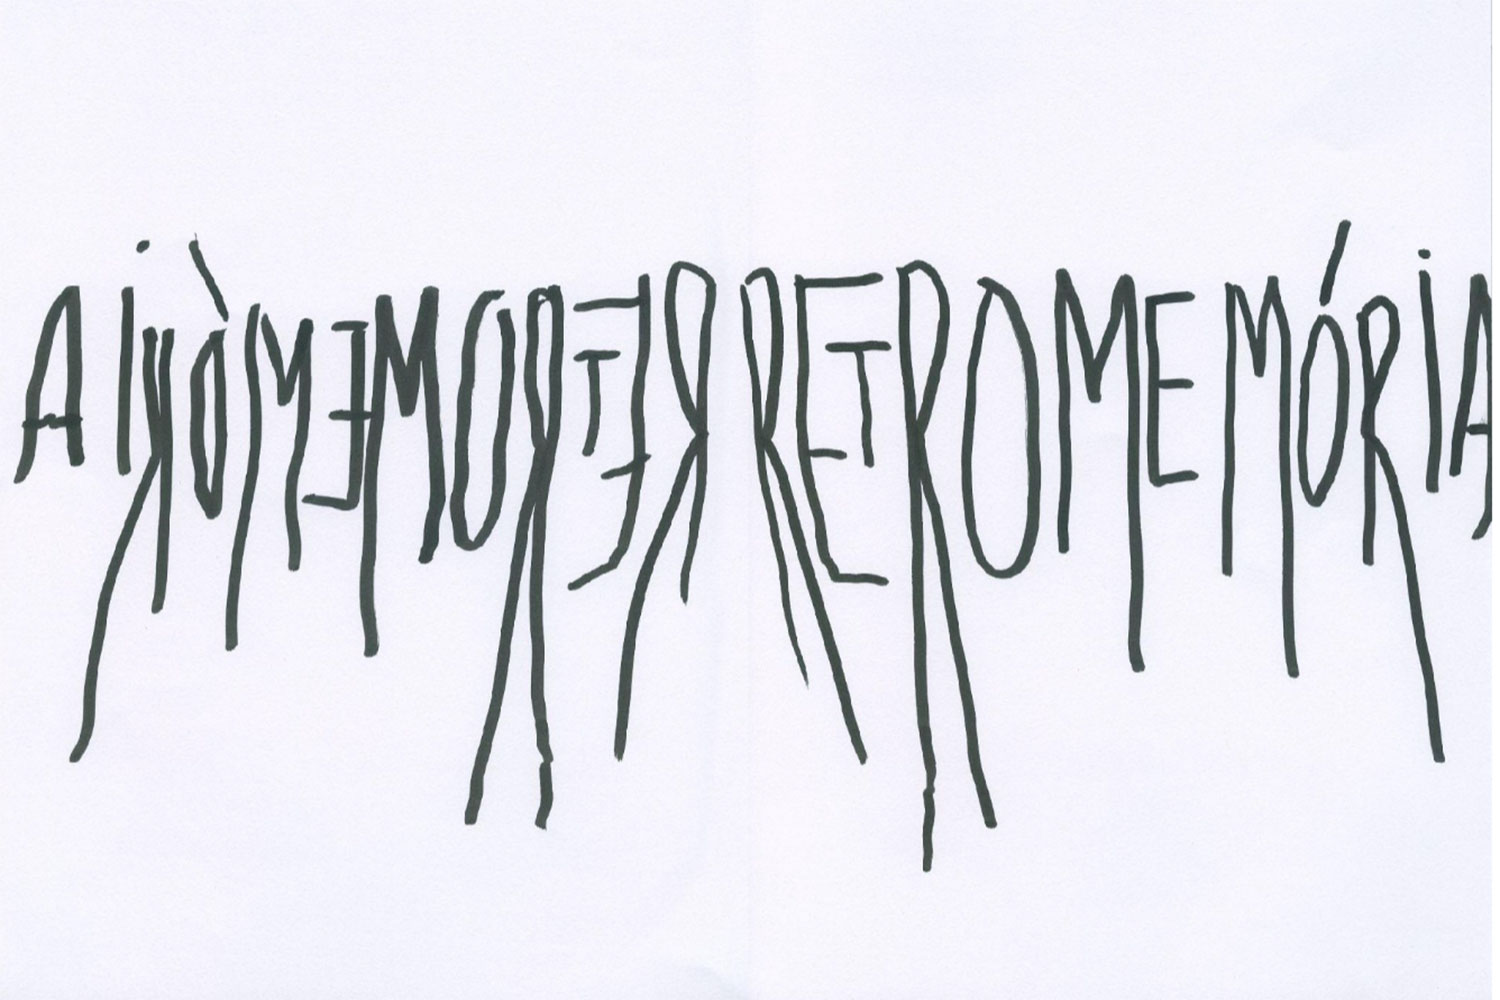 AIRÒMEMORTER RETROMEMÓRIA